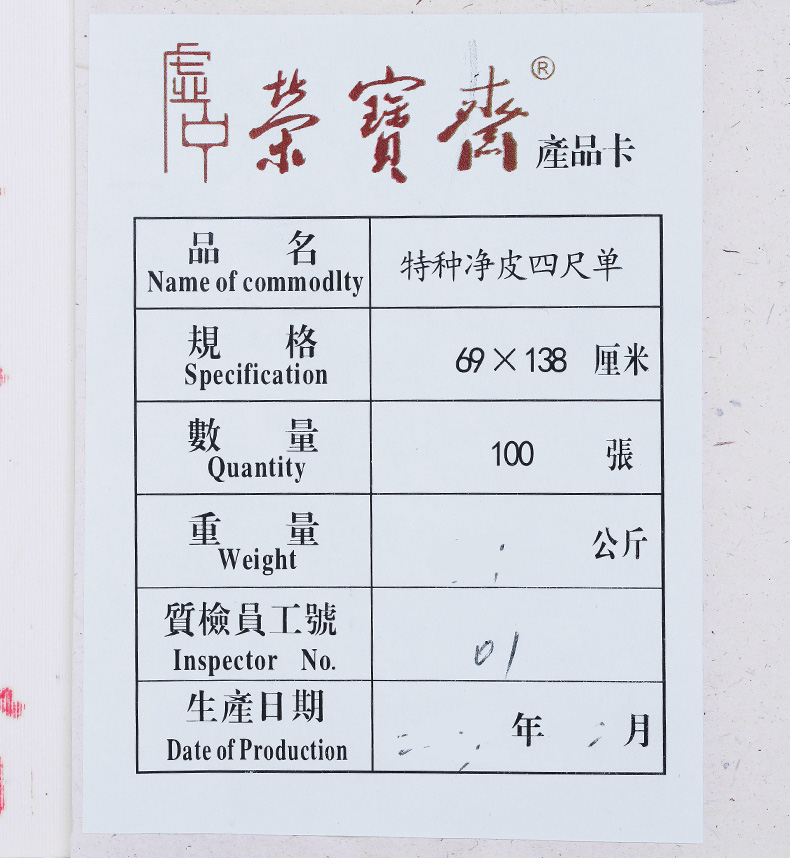 榮寶齋® 產品卡
品 名
Name of commodlty
特种净皮四尺单
規 格
Specification
69×138 厘米
數 量
Quantity
100 張
重 量
Weight
公斤
質檢員工號
Inspector No.
01
生產日期
Date of Production
年 月